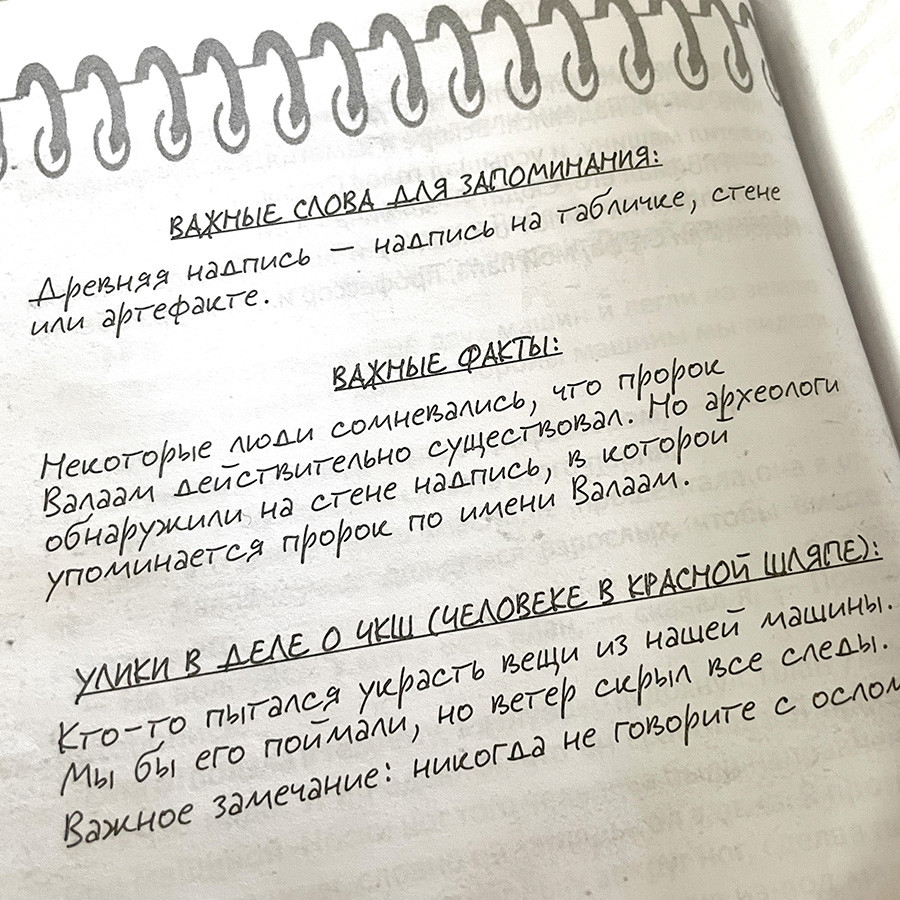 ВАЖНЫЕ СЛОВА ДЛЯ ЗАПОМИНАНИЯ:
Древняя надпись — надпись на табличке, стене
или артефакте.
ВАЖНЫЕ ФАКТЫ:
Некоторые люди сомневались, что пророк
Валаам действительно существовал. Но археологи
обнаружили на стене надпись, в которой
упоминается пророк по имени Валаам.
УЛИКИ В ДЕЛЕ О ЧКШ (ЧЕЛОВЕКЕ В КРАСНОЙ ШЛЯПЕ):
Кто-то пытался украсть вещи из нашей машины.
Мы бы его поймали, но ветер скрыл все следы.
Важное замечание: никогда не говорите с ослом